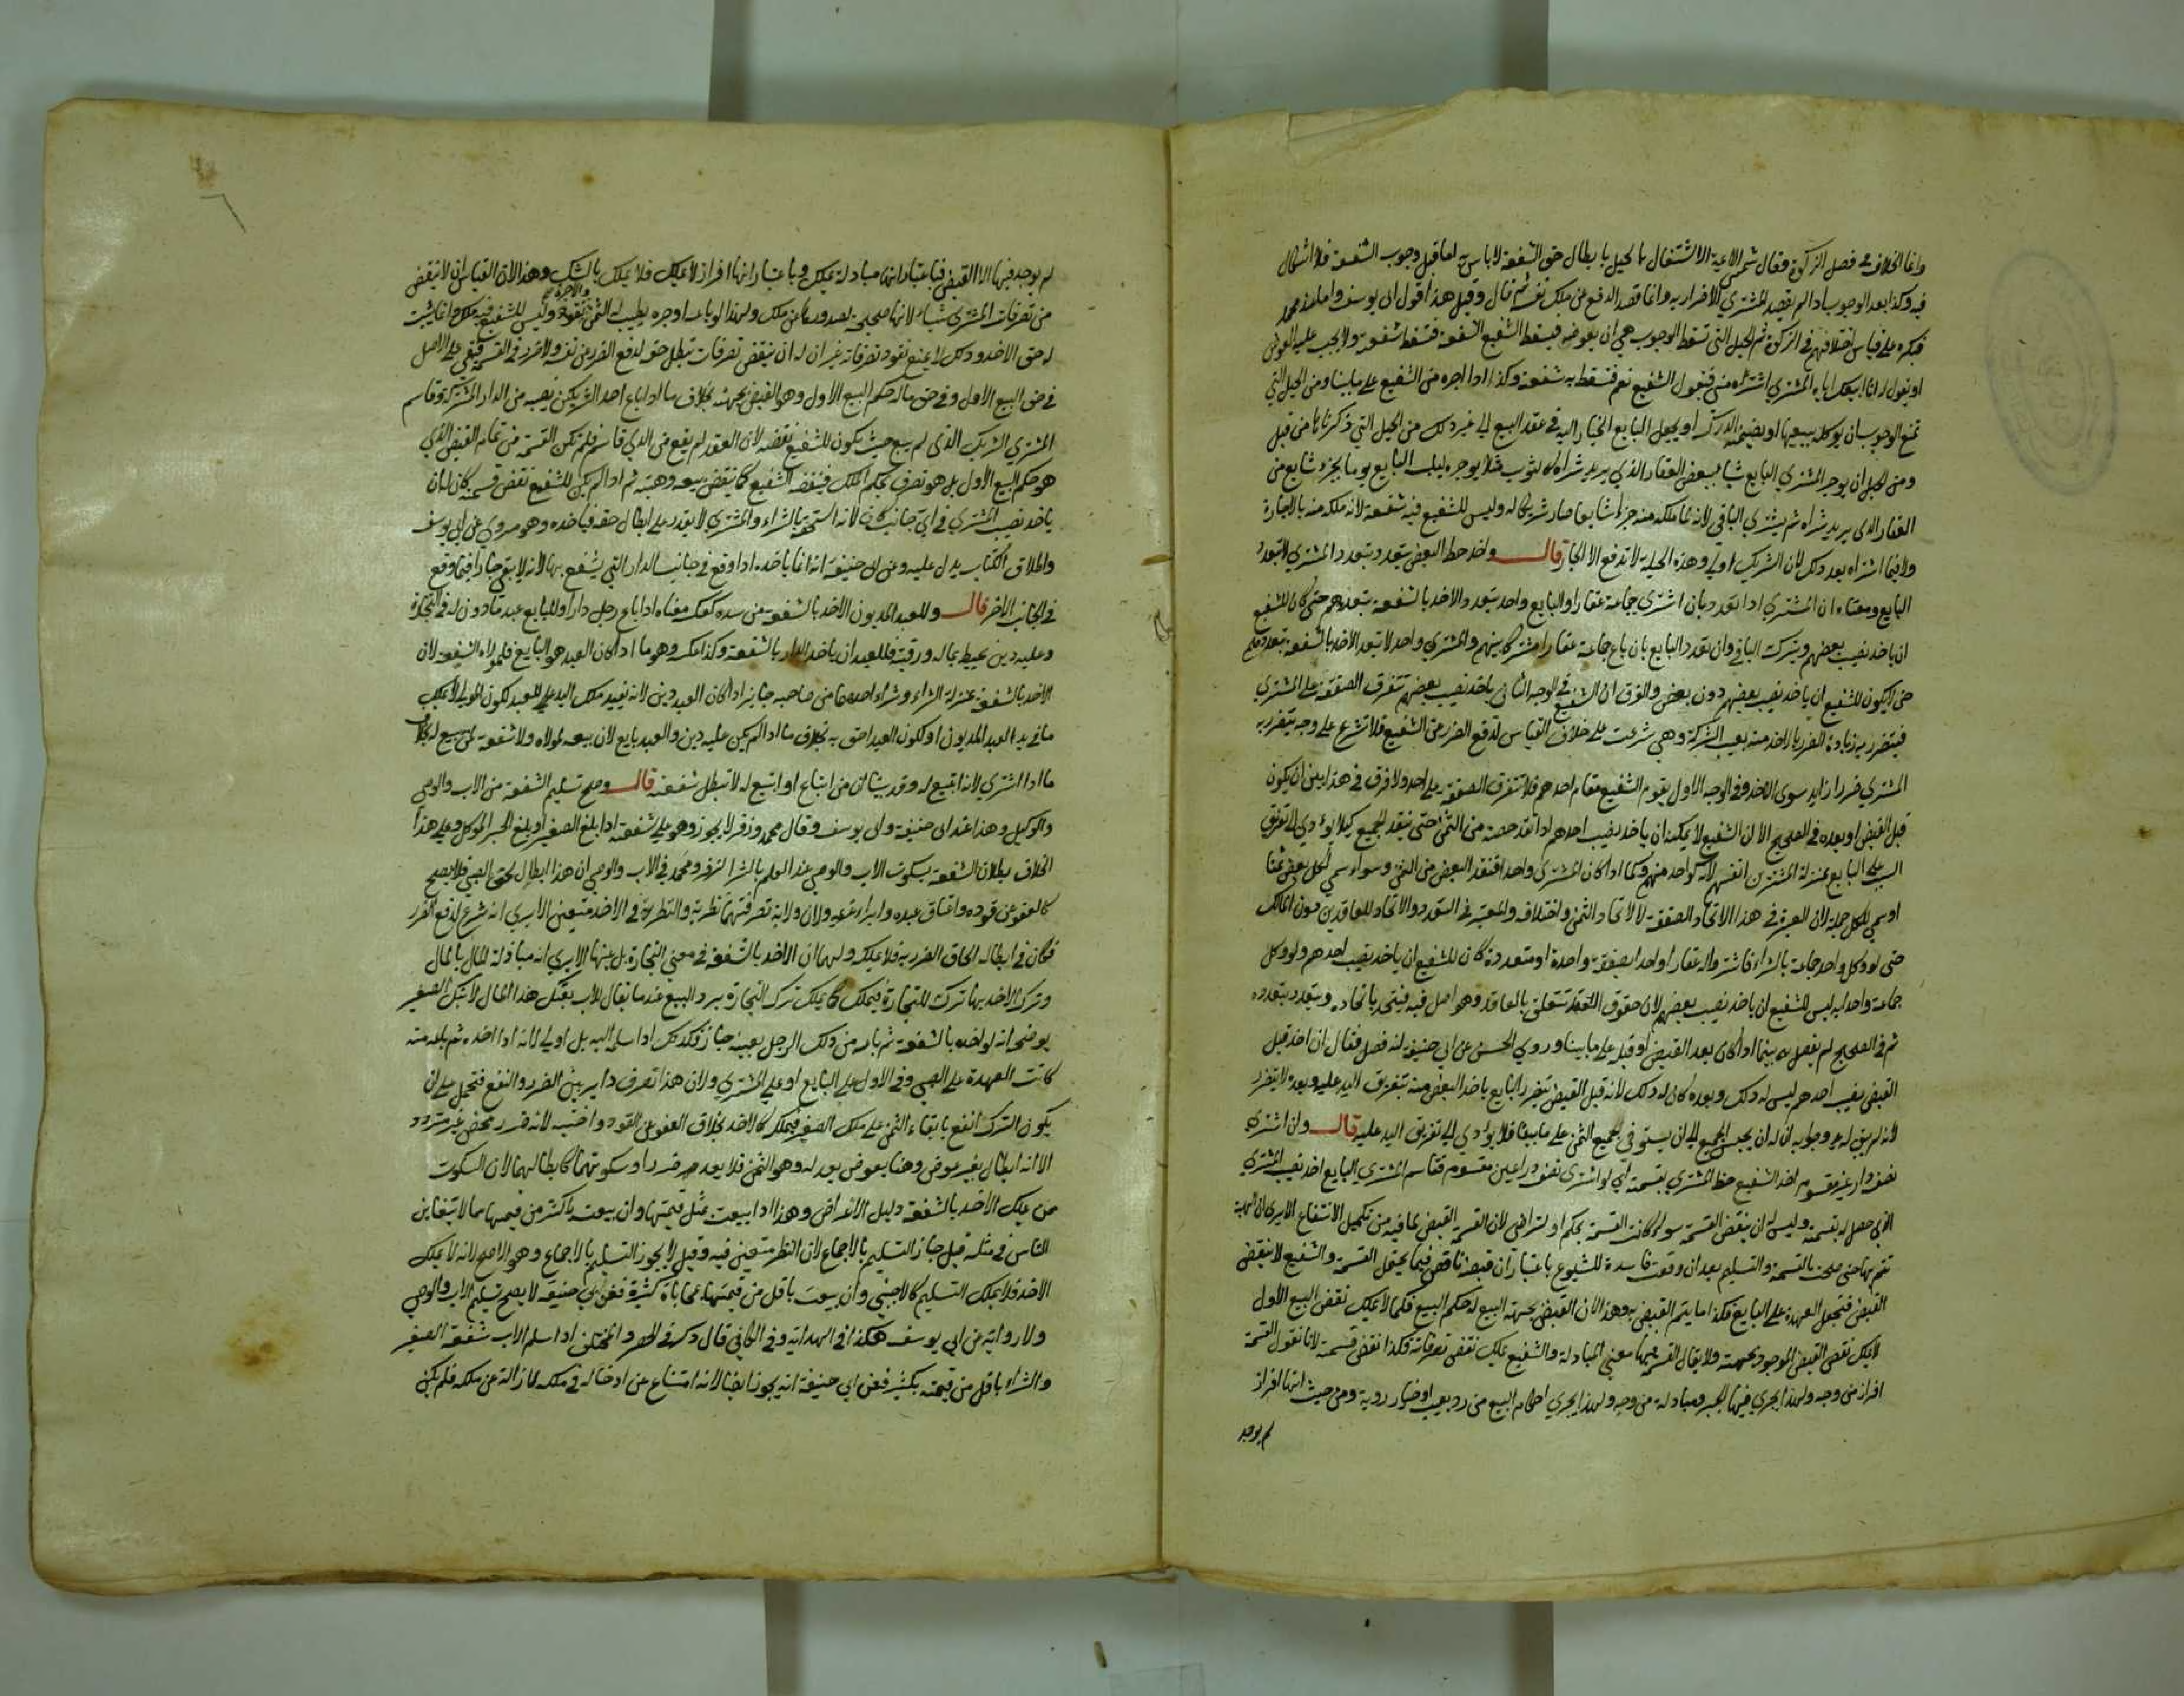 وانما الخلاف في فصل الزكوة وقال شمس الائمة الاشتغال بالحيل بابطال حق الشفعة لا باس به اما قبل وجوب الشفعة فلا اشكال
فيه وكذا بعد الوجوب اذا لم يقصد المشتري الاضرار به وانما قصد الدفع عن ملك نفسه ثم قال وقيل هذا قول ابي يوسف واما عند محمد
فيكره على قياس اختلافهم في الزكوة ثم الحيل التي تسقط الوجوب هي ان يعوضه فيسقط الشفيع الشفعة فتسقط شفعته ولا يجب عليه العوض
او يقول له انا ابيعك اياه المشتري اشتراه مني فيقول الشفيع نعم فتسقط به شفعته وكذا اذا اجره من الشفيع على ما بينا ومن الحيل التي
تمنع الوجوب ان يوكله ببيعها او يضمنه الدرك او يجعل البايع الخيار اليه في عقد البيع الي غير ذلك من الحيل التي ذكرناها من قبل
ومن الحيل ان يوجر المشتري البايع شيا ببعض العقار الذي يريد شراه كثوب مثلا يوجره ليلبسه البايع يوما بجزء شايع من
العقار الذي يريد شراه ثم يشتري الباقي لانه لما ملكه منه جزا شايعا صار شريكا له وليس للشفيع فيه شفعة لانه ملكه منه بالاجارة
ولا فيما اشتراه بعد ذلك لان الشريك اولي وهذه الحيلة لا تدفع الا الجار قال واخذ حظ البعض يتعدد بتعدد المشتري لا بتعدد
البايع ومعناه ان المشتري اذا تعدد بان اشتري جماعة عقارا والبايع واحد يتعدد الاخذ بالشفعة بتعددهم حتى كان للشفيع
ان ياخذ نصيب بعضهم ويترك الباقي وان تعدد البايع بان باع جماعة عقارا مشتركا بينهم والمشتري واحد لا يتعدد الاخذ بالشفعة بتعددهم
حتى لا يكون للشفيع ان ياخذ نصيب بعضهم دون بعض والفرق ان الشفيع في الوجه الثاني ياخذ نصيب بعضهم تتفرق الصفقة على المشتري
فيتضرر به زيادة الضرر بالاخذ منه بعيب الشركة وهي شرعت على خلاف القياس لدفع الضرر عن الشفيع فلا تشرع على وجه يتضرر به
المشتري ضررا زايد سوى الاخذ وفي الوجه الاول يقوم الشفيع مقام احدهم فلا تتفرق الصفقة على احد ولا فرق في هذا بين ان يكون
قبل القبض او بعده في الصحيح الا ان الشفيع لا يمكنه ان ياخذ نصيب احدهم اذا نقد حصته من الثمن حتى ينقد الجميع كيلا يؤدي الى تفريق
اليد على البايع بمنزلة المشترين انفسهم لانه كواحد منهم وكما اذا كان المشتري واحدا فنقد البعض من الثمن وسواء سمي لكل بعض ثمنا
او سمي للكل جملة لان العبرة في هذا الاتحاد الصفقة لا لاتحاد الثمن واختلافه والمعتبر في التعدد والاتحاد للعاقدين دون المالك
حتى لو وكل واحد جماعة بالشراء فاشتروا له عقارا واحدا بصفقة واحدة او متعددة كان للشفيع ان ياخذ نصيب احدهم ولو وكل
جماعة واحدا به ليس للشفيع ان ياخذ نصيب بعضهم لان حقوق العقد تتعلق بالعاقد وهو اصل فيه فيتحد باتحاده ويتعدد بتعدده
ثم في الصحيح لم يفصل بينما اذا كان بعد القبض او قبله على ما بينا وروي الحسن عن ابي حنيفة انه فصل فقال ان اخذ قبل
القبض نصيب احدهم ليس له ذلك وبعده كان له ذلك لانه قبل القبض يتضرر البايع باخذ البعض منه بتفريق اليد عليه وبعده لا يتضرر
لانه لم يبق له يد وجوابه ان له ان يحبس الجميع الي ان يستوفي جميع الثمن على ما بينا فلا يؤدي الي تفريق اليد عليه قال وان اشتري
نصف دار غير مقسوم اخذ الشفيع حظ المشتري بقسمته اي لو اشتري نصف دار غير مقسوم فقاسم المشتري البايع اخذ نصيب المشتري
الذي حصل له بقسمته وليس له ان ينقض القسمة سواء كانت القسمة بحكم او بتراض لان القسمة القبض لما فيه من تكميل الانتفاع الا يري ان الهبة
تتم بها حتى صحت بالقسمة والتسليم بعد ان وقعت فاسدة للشيوع باعتبار ان قبضه ناقص فيما يحتمل القسمة والشفيع لا ينقض
القبض فتجعل العهدة على البايع فكذا ما يتم القبض به وهذا لان القبض بجهة البيع له حكم البيع فكما لا يملك نقض البيع الاول
لا يملك نقض القبض الموجود بجهته ولا يقال القسمة فيها معنى المبادلة والشفيع يملك نقض تصرفاته فكذا نقض قسمته لانا نقول القسمة
افراز من وجه ولهذا يجري فيها الجبر ومبادلة من وجه ولهذا يجري احكام البيع من رد بعيب او خيار روية ومن حيث انها افراز
لم يوجد
لم يوجد فيها الا القبض فباعتبار انها مبادلة يملك وباعتبار انها افراز لا يملك فلا يملك بالشك وهذا لان القياس ان لا ينقض
من تصرفات المشتري شياء لانها صحيحة لصدورها عن ملك ولهذا لو باعه او اجره يطيب له الثمن والاجرة وليس للشفيع فيه ملك وانما يثبت
له حق الاخذ وذلك لا يمنع نفوذ تصرفاته غير ان له ان ينقض تصرفات تبطل حقه لدفع الضرر عن نفسه ولا ضرر في القسمة فبقي على الاصل
في حق البيع الاول وفي حق ماله حكم البيع الاول وهو القبض بجهته بخلاف ما اذا باع احد الشريكين نصيبه من الدار المشتركة وقاسم
المشتري الشريك الذي لم يبع حيث يكون للشفيع نقضه لان العقد لم يقع من الذي قاسم فلم تكن القسمة من تمام القبض الذي
هو حكم البيع الاول بل هو تصرف بحكم الملك فينقضه الشفيع كما ينقض بيعه وهبته ثم اذا لم يكن للشفيع نقض قسمته كان له ان
ياخذ نصيب المشتري في اي جانب كان لانه استحقه بالشراء والمشتري لا يقدر على ابطال حقه فياخذه وهو مروي عن ابي يوسف
واطلاق الكتاب يدل عليه وعن ابي حنيفة انه انما ياخذه اذا وقع في جانب الدار التي يشفع بها لانه لا يبقى جارا فيما وقع
في الجانب الاخر قال وللعبد المديون الاخذ بالشفعة من سيده كعكسه معناه اذا باع رجل دارا وللبايع عبد ماذون له في التجارة
وعليه دين محيط بماله ورقبته فللعبد ان ياخذ الدار بالشفعة وكذا عكسه وهو ما اذا كان العبد هو البايع فلمولاه الشفعة لان
الاخذ بالشفعة بمنزلة الشراء وشراء احدهما من صاحبه جايز اذا كان العبد دين لانه يفيد ملك اليد للعبد لكون المولي لا يملك
ما في يد العبد المديون او لكون العبد احق به بخلاف ما اذا لم يكن عليه دين والعبد بايع لان بيعه لمولاه ولا شفعة لمن يبيع له بخلاف
ما اذا اشتري لانه ابتيع له وقد بينا ان من ابتاع او ابتيع له لا تبطل شفعته قال وصح تسليم الشفعة من الاب والوصي
والوكيل وهذا عند ابي حنيفة وابي يوسف وقال محمد وزفر لا يجوز وهو على شفعته اذا بلغ الصغير او بلغ الخبر الموكل وعلى هذا
الخلاف بطلان الشفعة بسكوت الاب والوصي عند العلم بالشرا لزفر ومحمد في الاب والوصي ان هذا ابطال لحق الصبي فلا يصح
كالعفو عن قوده واعتاق عبده وابراء غريمه ولان ولاية تصرفهما نظرية والنظر في الاخذ متعين الا يري انه شرع لدفع الضرر
فكان في ابطاله الحاق الضرر به فلا يملك ولهما ان الاخذ بالشفعة في معنى التجارة بل عينها الا يري انه مبادلة المال بالمال
وترك الاخذ بها ترك للتجارة فيملك كما يملك ترك التجارة برد البيع عندما يقال للاب بعتك هذا المال لابنك الصغير
يوضحه انه لو اخذه بالشفعة ثم باعه من ذلك الرجل بعينه جاز فكذلك اذا سلمه اليه بل اولي لانه اذا اخذه ثم باعه منه
كانت العهدة على الصبي وفي الاول على البايع او على المشتري ولان هذا تصرف داير بين الضرر والنفع فتحمل على ان
يكون الترك انفع بابقاء الثمن على ملك الصغير فيملك كالاخذ بخلاف العفو عن القود واخيه لانه ضرر محض غير متردد
الا انه ابطال بغير عوض وهنا بعوض يعدله وهو الثمن فلا يعد ضررا وسكوتهما كابطالهما لان السكوت
ممن يملك الاخذ بالشفعة دليل الاعراض وهذا اذا بيعت بمثل قيمتها وان بيعت باكثر من قيمتها بما لا يتغابن
الناس في مثله قيل جاز التسليم بالاجماع لان النظر متعين فيه وقيل لا يجوز التسليم بالاجماع وهو الاصح لانه لا يملك
الاخذ فلا يملك التسليم كالاجنبي وان بيعت باقل من قيمتها بمحاباة كثيرة فعن ابي حنيفة لا يصح تسليم الاب والوصي
ولا رواية عن ابي يوسف هكذا في الهداية وفي الكافي قال ذكر في اذا سلم الاب شفعة الصغير
والشراء باقل من قيمته بكثير فعن ابي حنيفة انه يجوز ايضا لانه امتناع عن ادخاله في ملكه لا ازالة عن ملكه فلم يكن